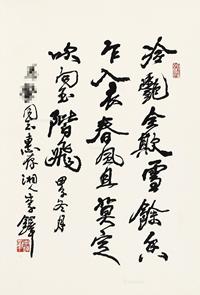 冷艷全欺雪餘香
乍入衣春風且莫定
吹向玉階飛 甲子冬月
同志惠存 湘人李鐸